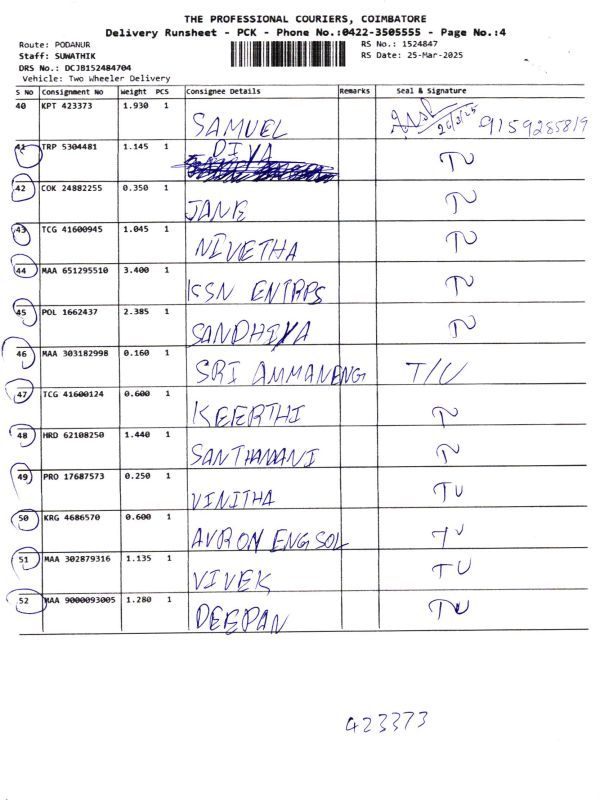 THE PROFESSIONAL COURIERS, COIMBATORE
Delivery Runsheet - PCK - Phone No.:0422-3505555 - Page No.:4
Route: PODANUR RS No.: 1524847
Staff: SUWATHIK RS Date: 25-Mar-2025
DRS No.: DCJB152484704
Vehicle: Two Wheeler Delivery
S No Consignment No Weight PCS Consignee Details Remarks Seal & Signature
40 KPT 423373 1.930 1 SAMUEL 26/3/25 9159285819
41 TRP 5304481 1.145 1 DIYA TU
42 COK 24882255 0.350 1 JANE TU
43 TCG 41600945 1.045 1 NIVETHA TU
44 MAA 651295510 3.400 1 KSN ENTRPS TU
45 POL 1662437 2.385 1 SANDHIYA TU
46 MAA 303182998 0.160 1 SRI AMMAN ENG T/U
47 TCG 41600124 0.600 1 KEERTHI TU
48 HRD 62108250 1.440 1 SANTHAMANI TU
49 PRO 17687573 0.250 1 VINITHA TU
50 KRG 4686570 0.600 1 AVRON ENG SOL TU
51 MAA 302879316 1.135 1 VIVEK TU
52 MAA 9000093005 1.280 1 DEEPAN TU
423373